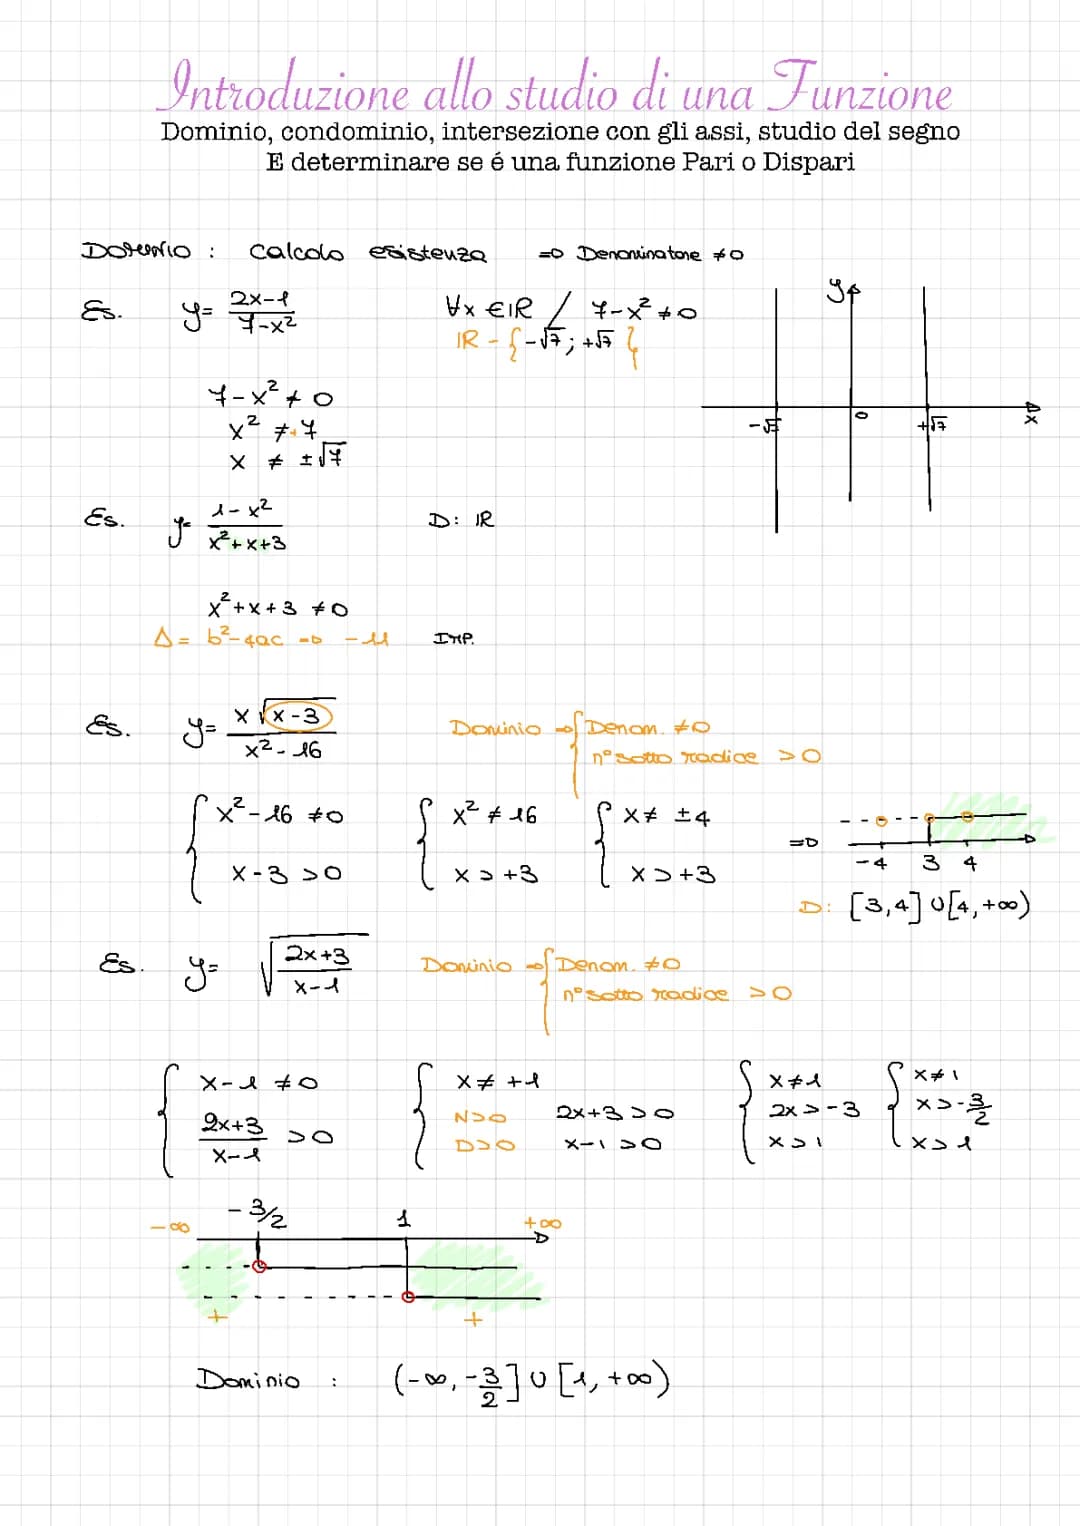 Introduzione allo studio di una Funzione
Dominio, condominio, intersezione con gli assi, studio del segno
E determinare se é una funzione Pari o Dispari
Dominio : calcolo esistenza => Denominatore ≠0
Es. y= (2x-1)/(7-x²) ∀x ∈ IR / 7-x² ≠0
IR - {-√7; +√7}
7-x² ≠ 0
x² ≠+7
x ≠ ±√7
y
-√7 0 +√7 x
Es. y= (1-x²)/(x²+x+3) D: IR
x²+x+3 ≠0
Δ= b²-4ac => -11 IMP.
Es. y= (x√(x-3))/(x²-16) Dominio => { Denom. ≠0
n° sotto radice >0
{ x²-16 ≠0 { x² ≠ 16 { x≠ ±4
x-3 >0 x > +3 x > +3
=> -4 3 4
D: [3,4] ∪ [4,+∞)
Es. y= √((2x+3)/(x-1)) Dominio => { Denom. ≠0
n° sotto radice >0
{ x-1 ≠0 { x≠ +1 { x≠1 { x≠1
(2x+3)/(x-1) >0 N>0 2x+3 >0 2x > -3 x > -3/2
D>0 x-1 >0 x > 1 x > 1
-∞ -3/2 1 +∞
+ +
Dominio : (-∞, -3/2] ∪ [1, +∞)